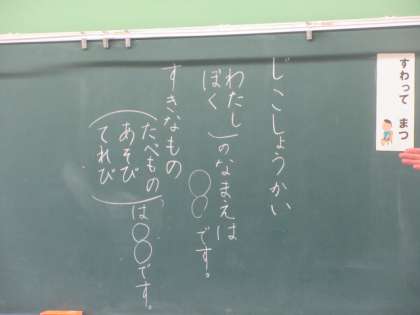 すわって まつ
じこしょうかい
わたし
ぼく
のなまえは
○○です。
すきなもの
たべもの
あそび
てれび
は○○です。